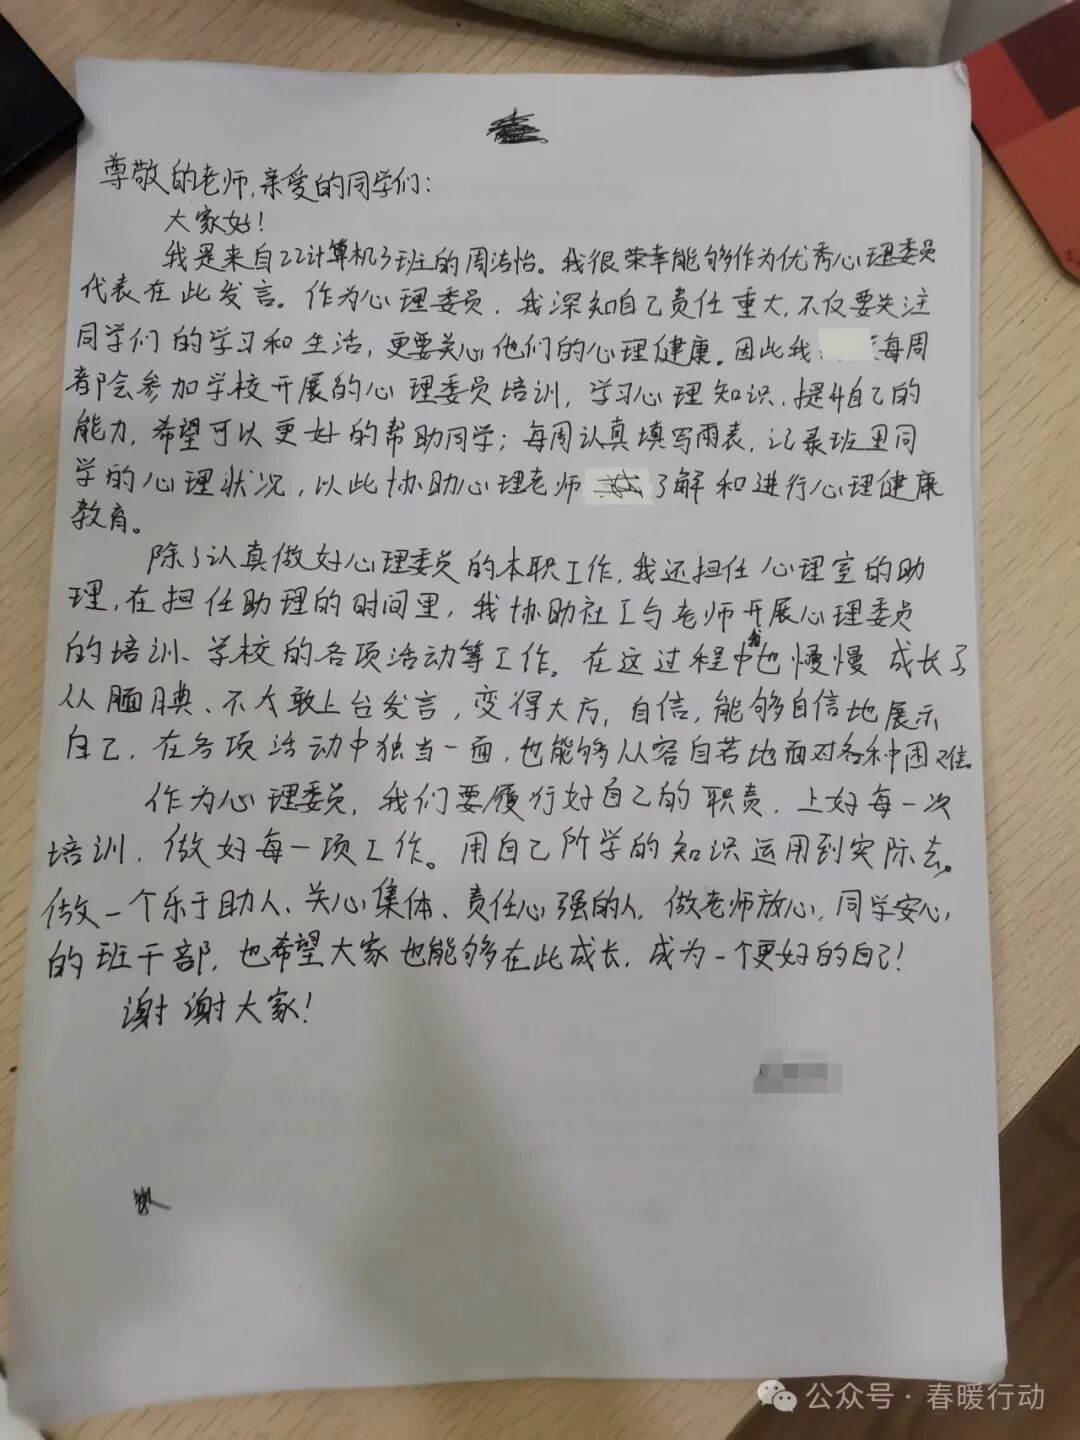 尊敬的老师,亲爱的同学们:
大家好!
我是来自22计算机3班的周洁怡。我很荣幸能够作为优秀心理委员
代表在此发言。作为心理委员,我深知自己责任重大,不仅要关注
同学们的学习和生活,更要关心他们的心理健康。因此我每周
都会参加学校开展的心理委员培训,学习心理知识,提升自己的
能力,希望可以更好的帮助同学;每周认真填写雨表,记录班里同
学的心理状况,以此协助心理老师了解和进行心理健康
教育。
除了认真做好心理委员的本职工作,我还担任心理室的助
理,在担任助理的时间里,我协助社工与老师开展心理委员
的培训、学校的各项活动等工作。在这过程中我也慢慢成长了
从腼腆、不太敢上台发言,变得大方,自信,能够自信地展示
自己,在各项活动中独当一面,也能够从容自若地面对各种困难。
作为心理委员,我们要履行好自己的职责,上好每一次
培训,做好每一项工作。用自己所学的知识运用到实际去。
做一个乐于助人、关心集体、责任心强的人,做老师放心,同学安心
的班干部,也希望大家也能够在此成长,成为一个更好的自己!
谢谢大家!
公众号·春暖行动